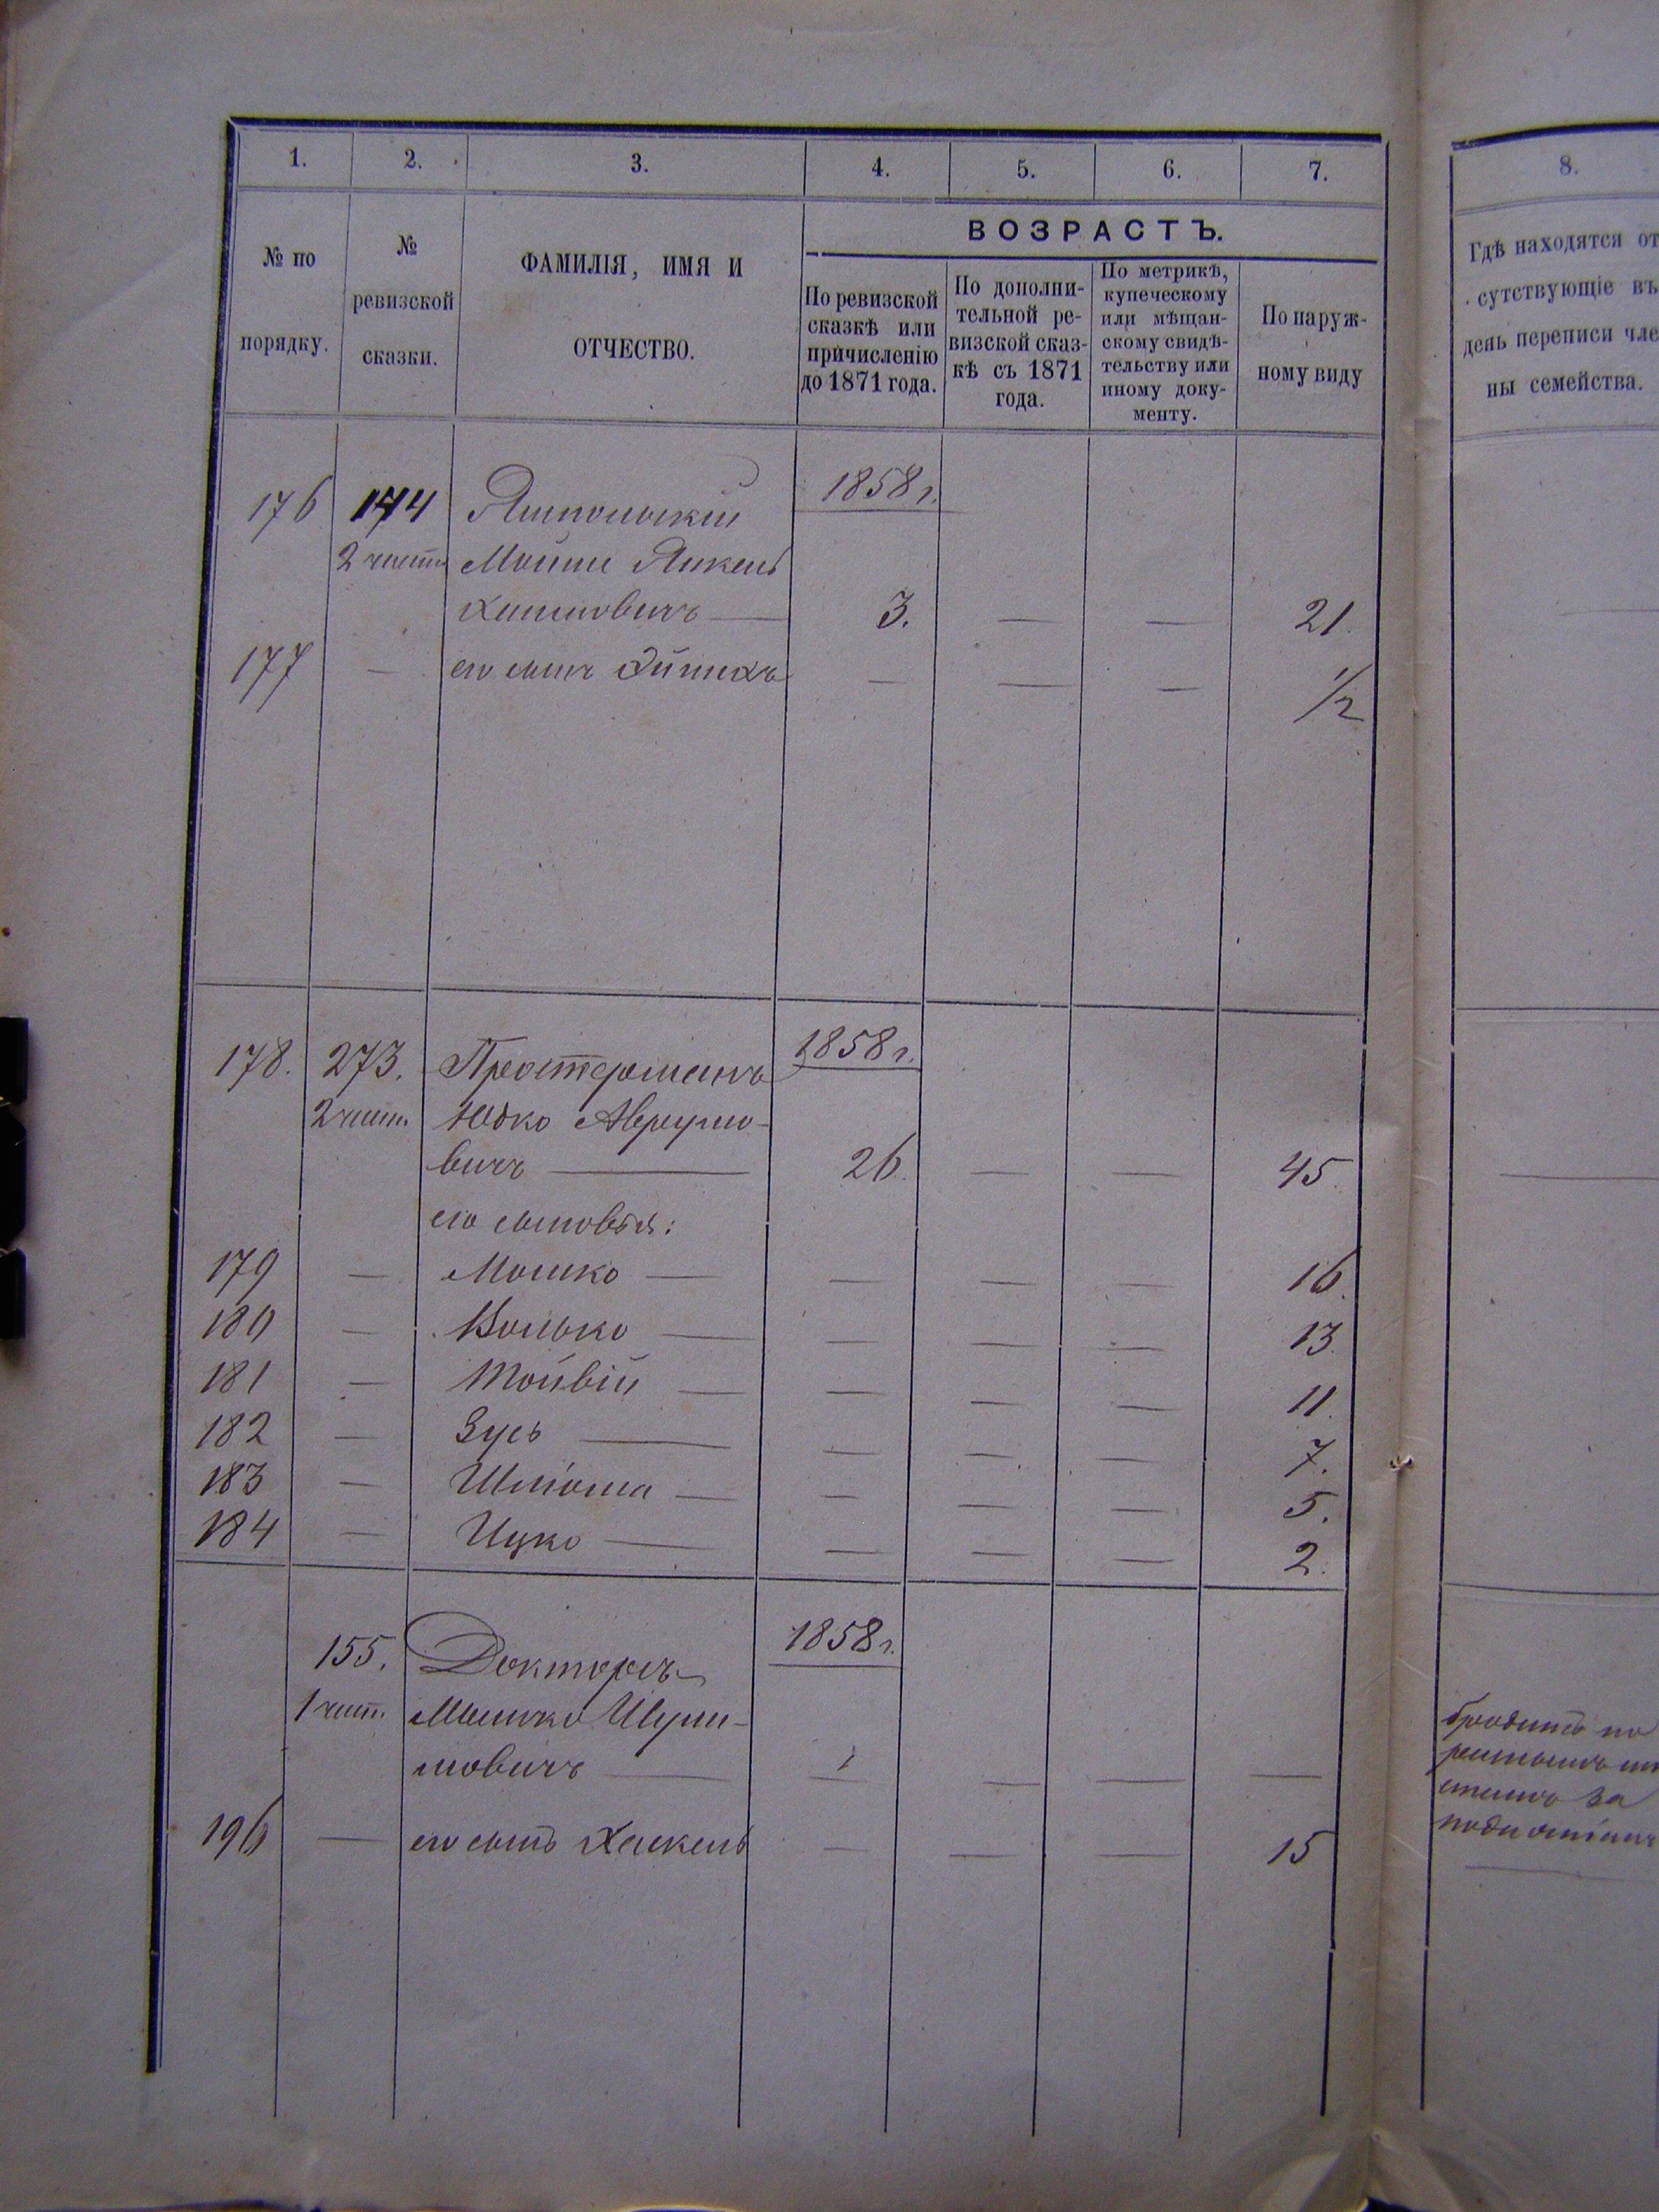 1. 2. 3. 4. 5. 6. 7. 8.
ВОЗРАСТЪ.
№ по
порядку.
№
ревизской
сказки.
ФАМИЛІЯ, ИМЯ И
ОТЧЕСТВО.
По ревизской
сказкѣ или
причисленію
до 1871 года.
По дополни-
тельной ре-
визской сказ-
кѣ съ 1871
года.
По метрикѣ,
купеческому
или мѣщан-
скому свидѣ-
тельству или
иному доку-
менту.
По наруж-
ному виду
Гдѣ находятся от
сутствующіе въ
день переписи чле
ны семейства.
176 174 1858 г.
2 част. Мошко Янкель
Хаимовичъ — 3. — — 21.
177 — его сынъ — — — 1/2
178. 273. Простерманъ 1858 г.
2 част. Юдко Аврумо-
вичъ — 26. — — 45.
его сыновья:
179 — Мошко — — — — 16.
180 — Волько — — — — 13.
181 — Тойвій — — — — 11.
182 — Зусь — — — — 7.
183 — Шліома — — — — 5.
184 — Ицко — — — — 2.
155. Докторъ 1858 г.
1 част. Мошко Шули-
мовичъ — 1 — — —
196 — его сынъ Хаскель — — — 15
бродитъ по
за